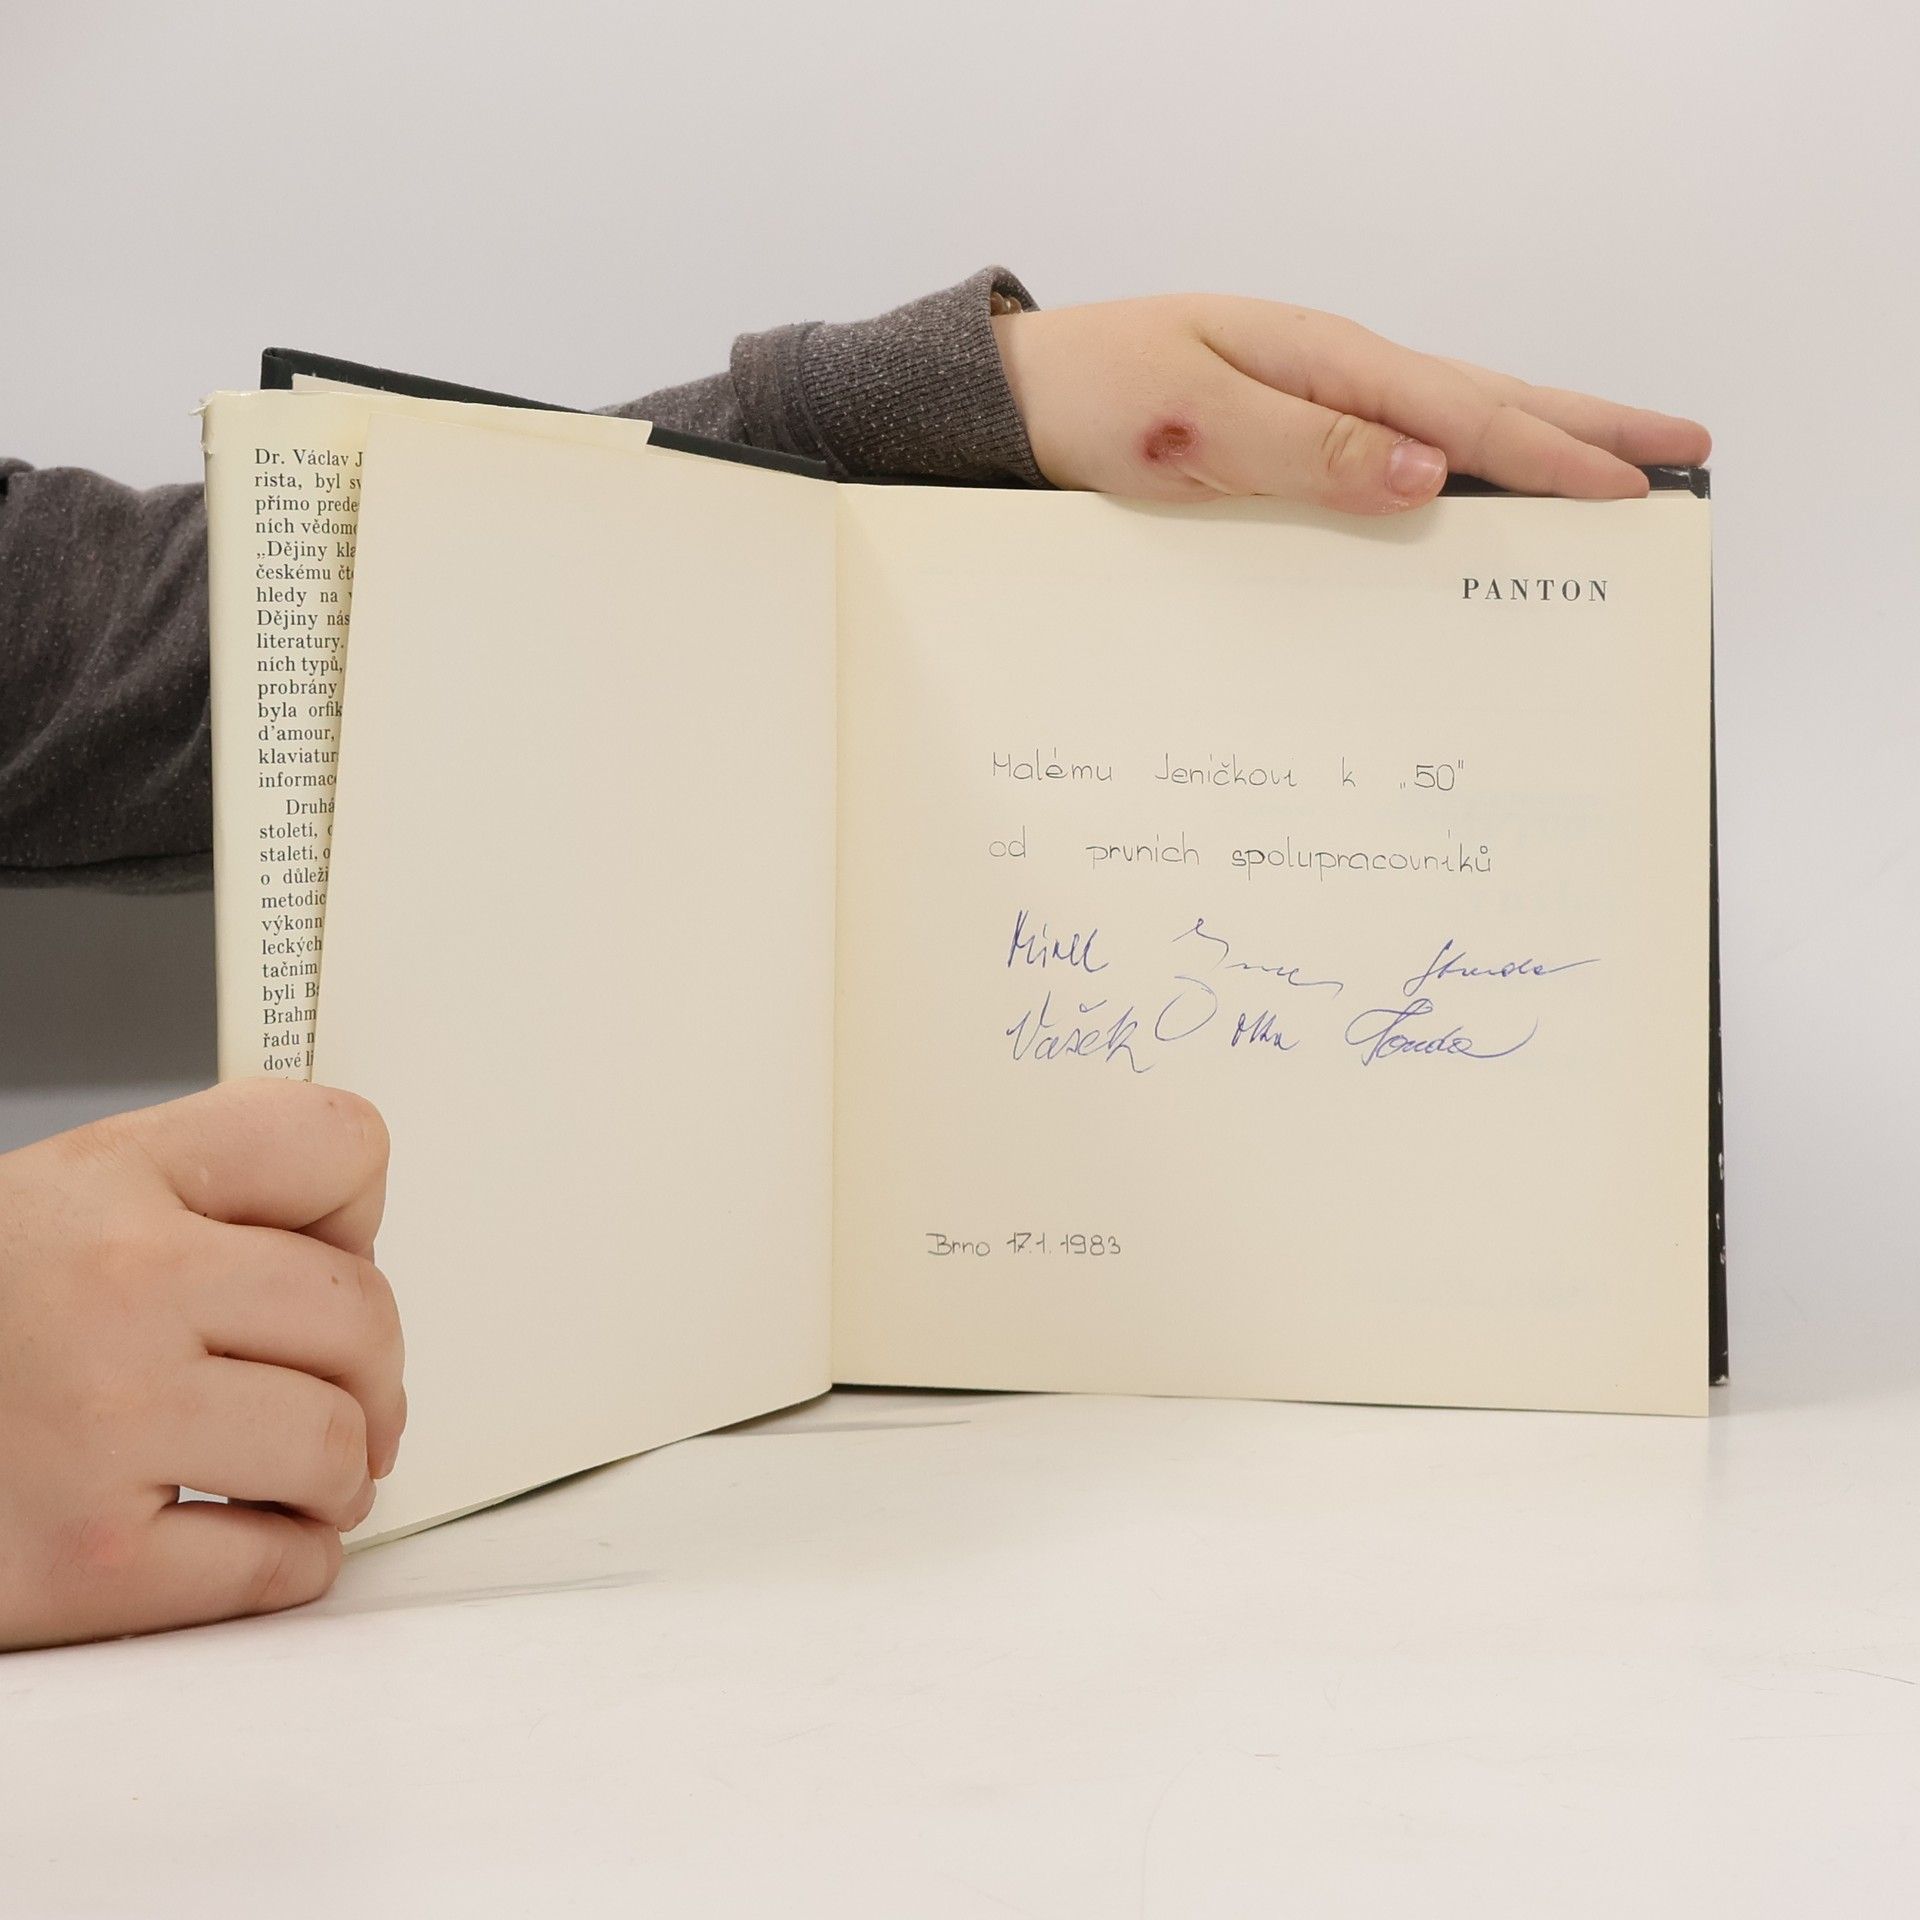 Dr. Václav J
rista, byl sv
přímo prede
ních vědomo
„Dějiny kla
českému čt
hledy na v
Dějiny nás
literatury.
ních typů,
probrány
byla orfik
d’amour,
klaviatur
informac
Druhá
století,
staletí, o
o důleži
metodic
výkonn
leckých
tačním
byli B
Brahm
řadu n
dové li
PANTON
Malému Jeníčkovi k „50"
od prvních spolupracovníků
Mirek
Vašek Olka Honda
Brno 17.1.1983